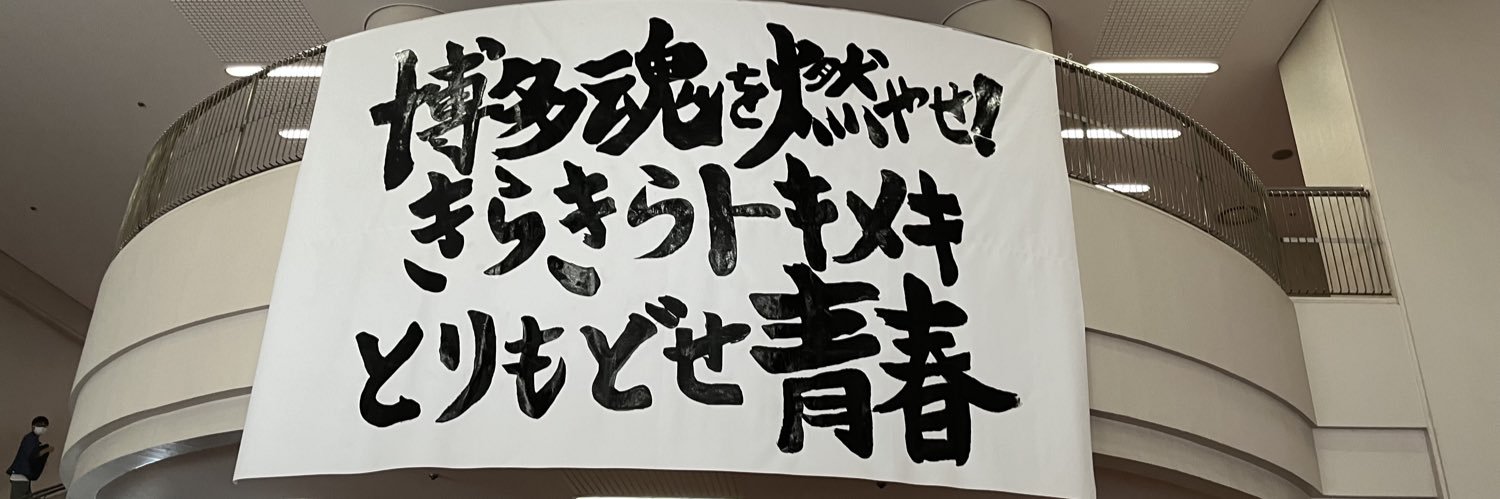 博多魂を燃やせ!
きらきらトキメキ
とりもどせ青春